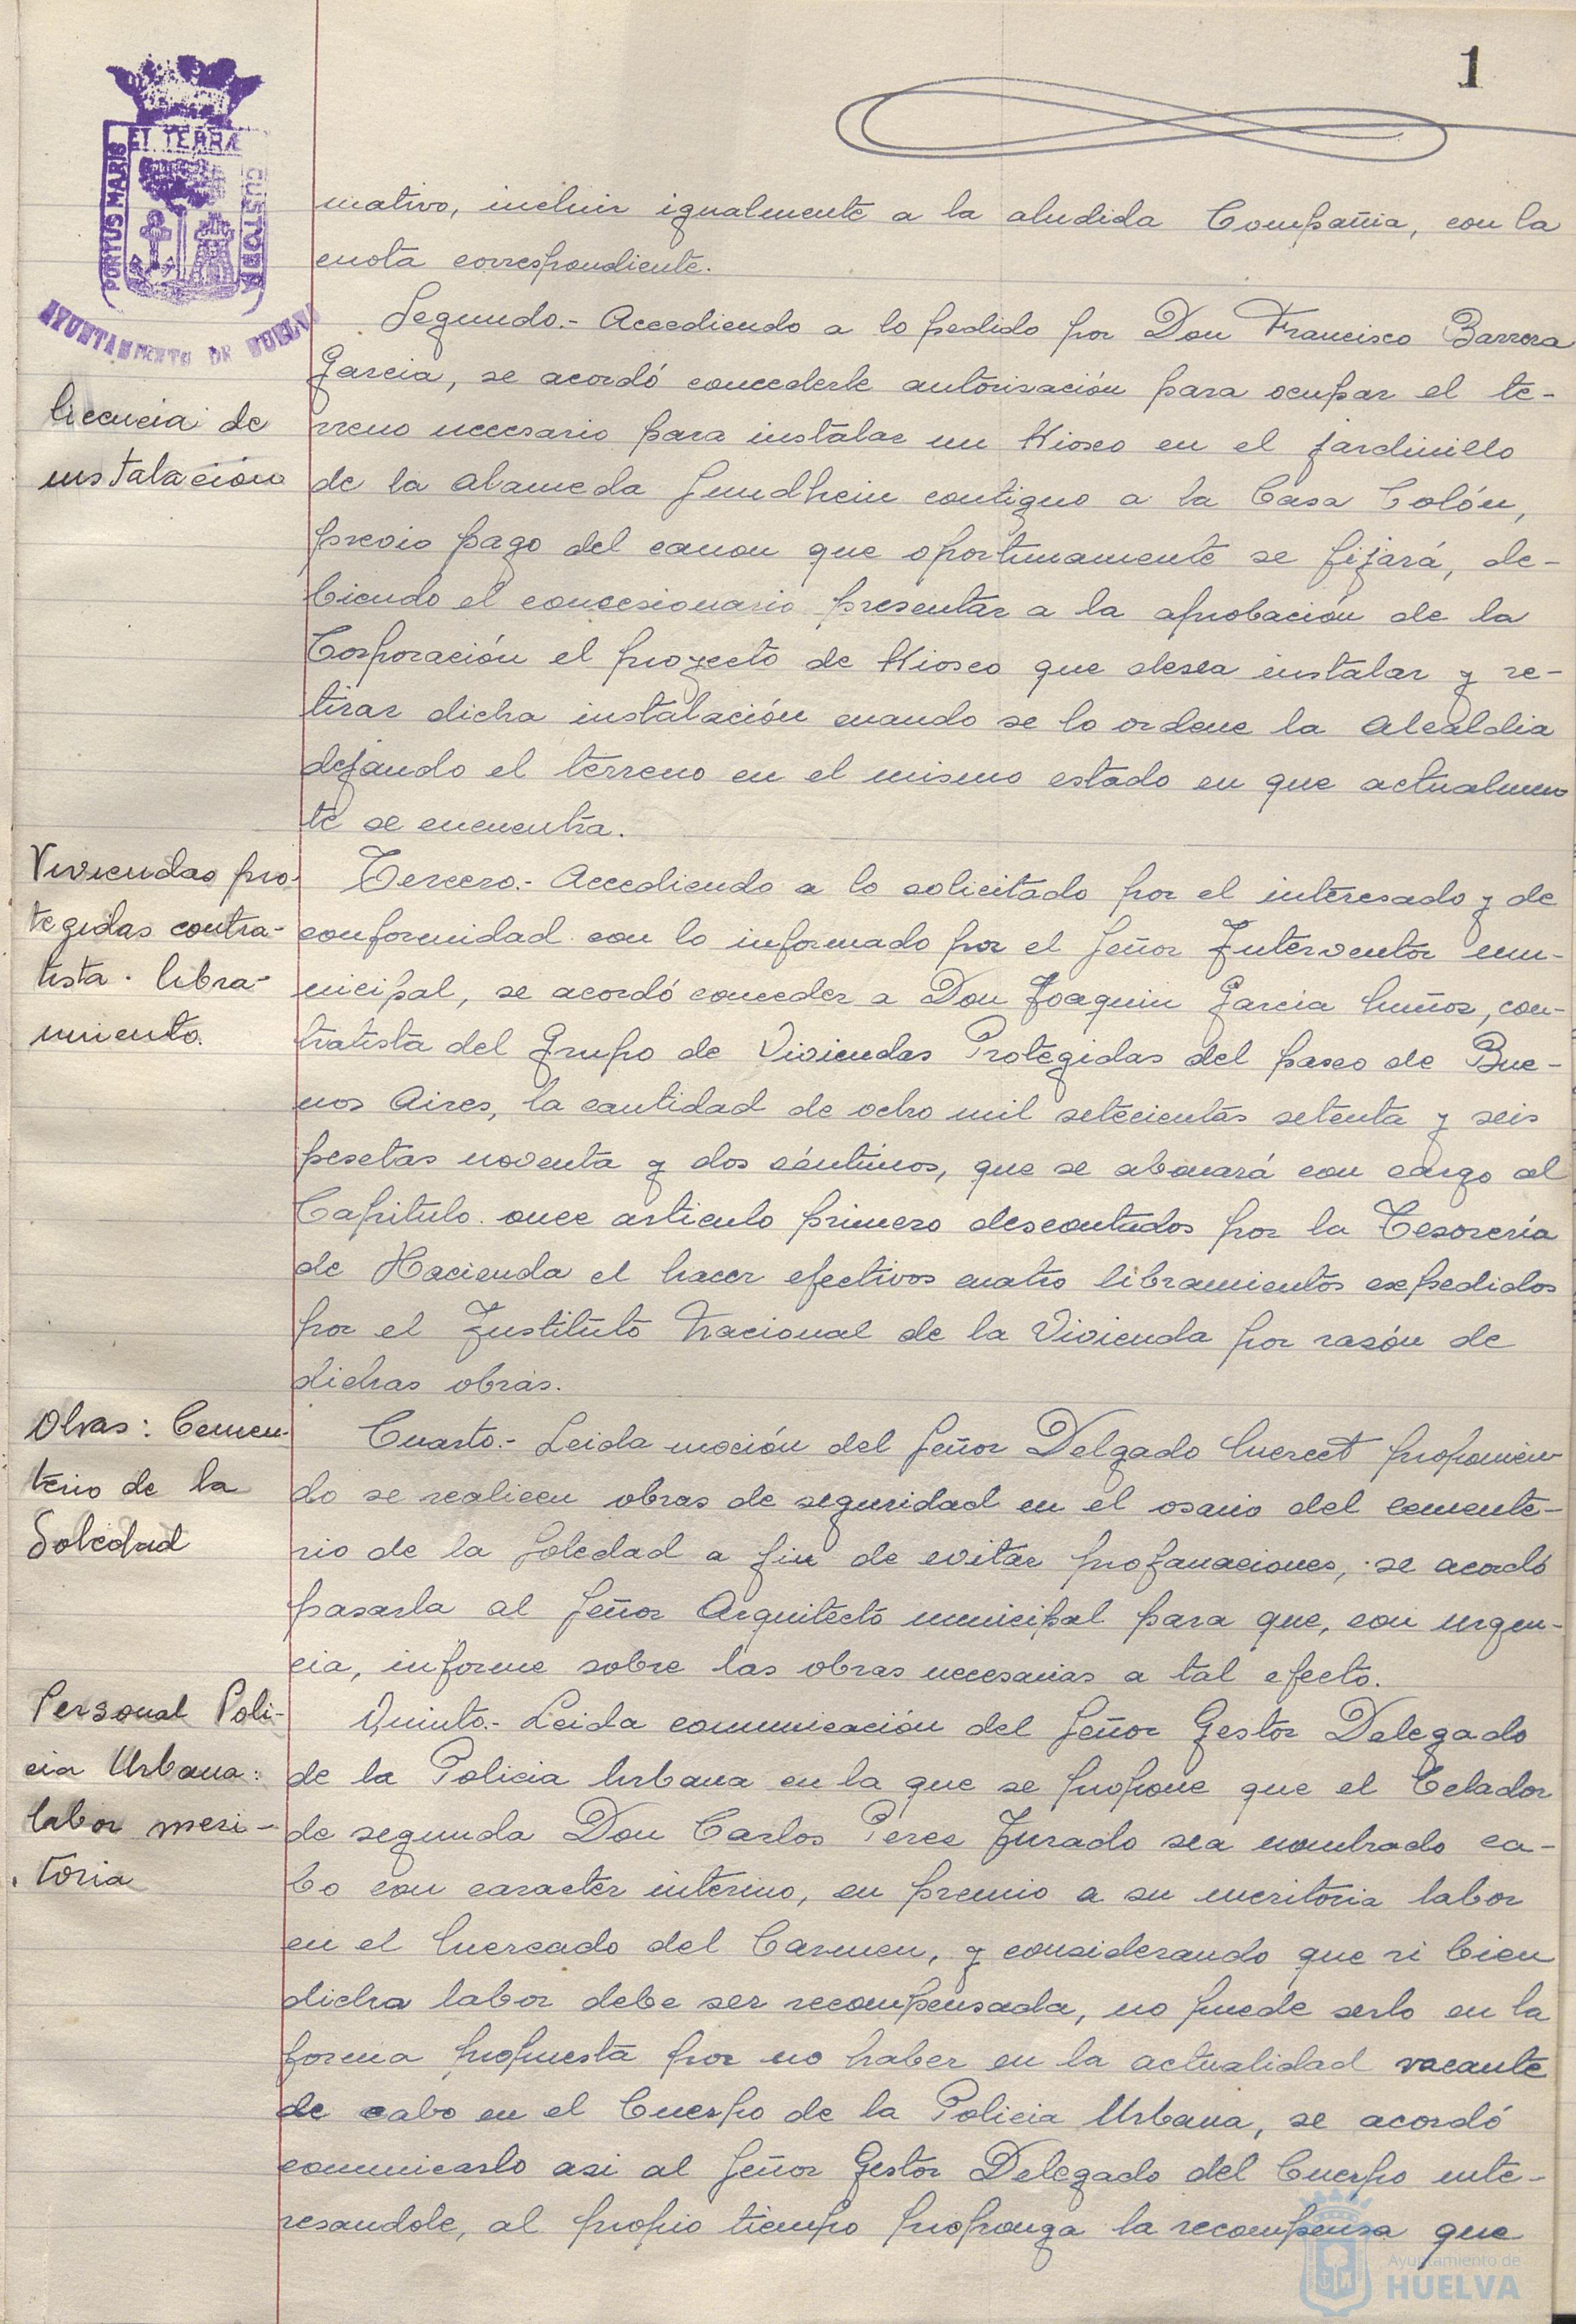 1
ET TERRÆ
PORTUS MARIS
CUSTODIA
AYUNTAMIENTO DE HUELVA
mativo, incluir igualmente a la aludida Compañia, con la
cuota correspondiente.
Segundo.- Accediendo a lo pedido por Don Francisco Barrera
Garcia, se acordó concederle autorisación para ocupar el te-
Licencia de
instalación
rreno necesario para instalar un Kiosco en el jardinillo
de la alameda Sundhein contiguo a la Casa Colón,
previo pago del canon que oportunamente se fijará, de-
biendo el concesionario presentar a la aprobación de la
Corporación el proyecto de Kiosco que desea instalar y re-
tirar dicha instalación cuando se lo ordene la Alcaldia
dejando el terreno en el mismo estado en que actualmen
te se encuentra.
Viviendas pro-
tegidas contra-
tista. libra-
miento.
Tercero.- Accediendo a lo solicitado por el interesado y de
conformidad con lo informado por el Señor Interventor mu-
nicipal, se acordó conceder a Don Joaquin Garcia Muñoz, con-
tratista del Grupo de Viviendas Protegidas del paseo de Bue-
nos Aires, la cantidad de ocho mil setecientas setenta y seis
pesetas noventa y dos céntimos, que se abonará con cargo al
Capitulo once articulo primero descontados por la Tesorería
de Hacienda el hacer efectivos cuatro libramientos expedidos
por el Instituto Nacional de la Vivienda por rasón de
dichas obras.
Obras: Cemen-
terio de la
Soledad
Cuarto.- Leida moción del Señor Delgado Mercet proponien-
do se realicen obras de seguridad en el osario del cemente-
rio de la Soledad a fin de evitar profanaciones, se acordó
pasarla al Señor Arquitecto municipal para que, con urgen-
cia, informe sobre las obras necesarias a tal efecto.
Personal Poli-
cia Urbana:
labor meri-
toria
Quinto.- Leida comunicación del Señor Gestor Delegado
de la Policia Urbana en la que se propone que el Celador
de segunda Don Carlos Perez Jurado sea nombrado ca-
bo con caracter interino, en premio a su meritoria labor
en el Mercado del Carmen, y considerando que si bien
dicha labor debe ser recompensada, no puede serlo en la
forma propuesta por no haber en la actualidad vacante
de cabo en el Cuerpo de la Policia Urbana, se acordó
comunicarlo asi al Señor Gestor Delegado del Cuerpo inte-
resandole, al propio tiempo proponga la recompensa que
Ayuntamiento de
HUELVA